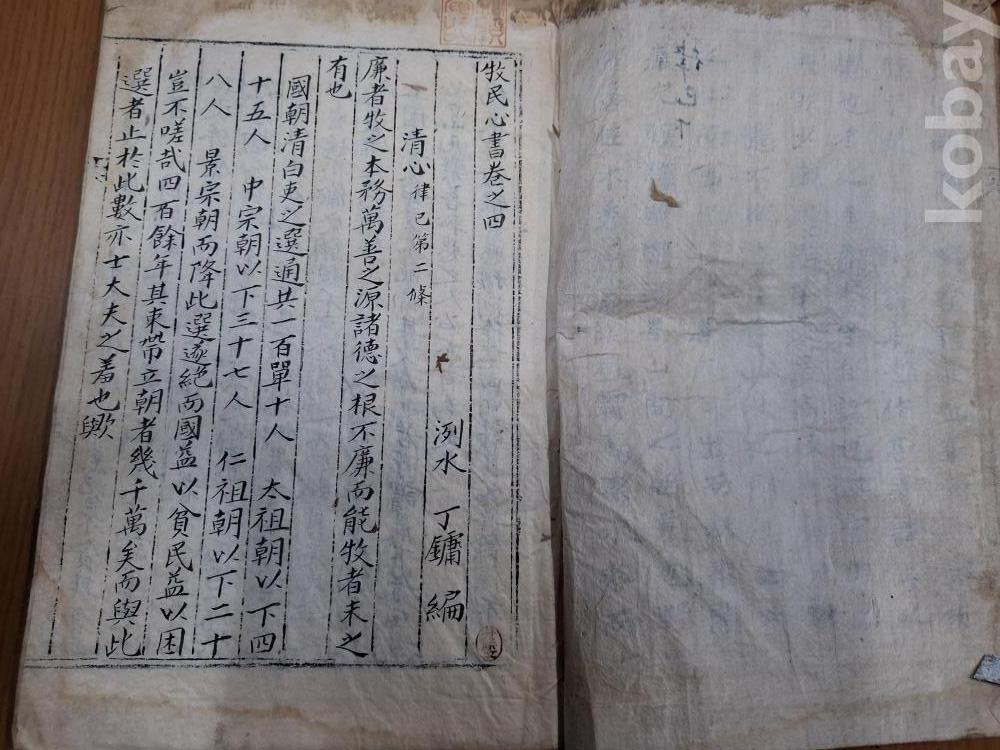 牧民心書卷之四
洌水 丁鏞 編
清心 律己第二條
廉者牧之本務萬善之源諸德之根不廉而能牧者未之
有也
國朝清白吏之選通共一百單十人 太祖朝以下四
十五人 中宗朝以下三十七人 仁祖朝以下二十
八人 景宗朝而降此選遂絕而國益以貧民益以困
豈不嗟哉四百餘年其束帶立朝者幾千萬矣而與此
選者止於此數亦士大夫之羞也歟
律己下
kobay